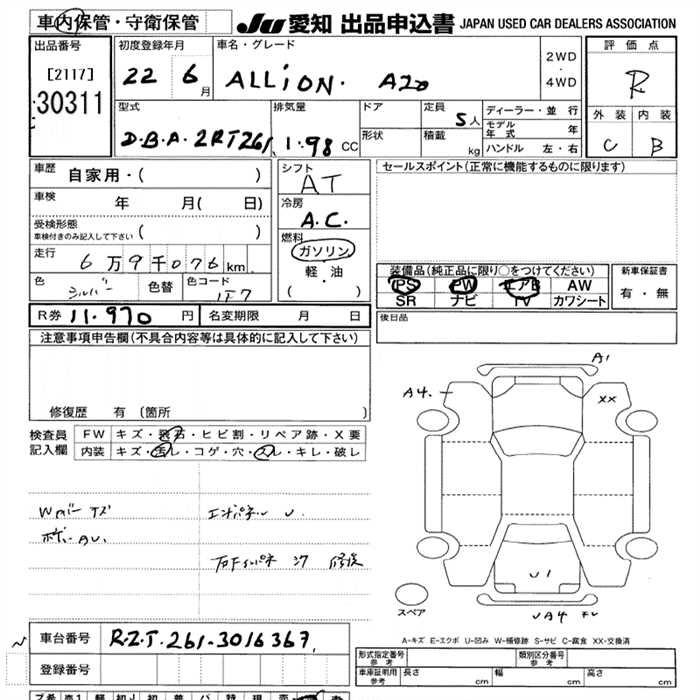 車内保管・守衛保管
JU 愛知 出品申込書 JAPAN USED CAR DEALERS ASSOCIATION
出品番号
[2117]
30311
初度登録年月
22 6月
車名・グレード
ALLiON. A20
2WD
・
4WD
評価点
R
外装 内装
C B
型式
D.B.A.2RT261
排気量
1.98 CC
ドア
形状
定員 5人
積載 kg
ディーラー・並行
モデル年式 年
ハンドル 左・右
車歴 自家用・( )
車検 年 月( 日)
受検形態
車検付きのみ記入して下さい ( )
走行 6万9千076km
色 シルバー 色替 色コード 1F7
シフト
AT
冷房
A.C.
燃料
ガソリン
軽・油
( ・ )
セールスポイント(正常に機能するものに限ります)
装備品(純正品に限り○をつけてください)
PS PW エアB AW
SR ナビ TV カワシート
新車保証書
有・無
R券 11.970 円 名変期限 月 日
後日品
注意事項申告欄(不具合内容等は具体的に記入して下さい)
修復歴 有(箇所
検査員
記入欄
FW キズ・飛石・ヒビ割・リペア跡・X要
内装 キズ・汚レ・コゲ・穴・スレ・キレ・破レ
A1
A4.
XX
Wカバー キズ
ボデーAU.
エンドパネル U
右Fインパネ 修復
U1
UA4
スペア
A-キズ E-エクボ U-凹み W-補修跡 S-サビ C-腐食 XX-交換済
車台番号 RZT.261-3016367
登録番号
形式指定番号
参考
類別区分番号
参考
車庫証明用
参考
長さ cm 幅 cm 高さ cm